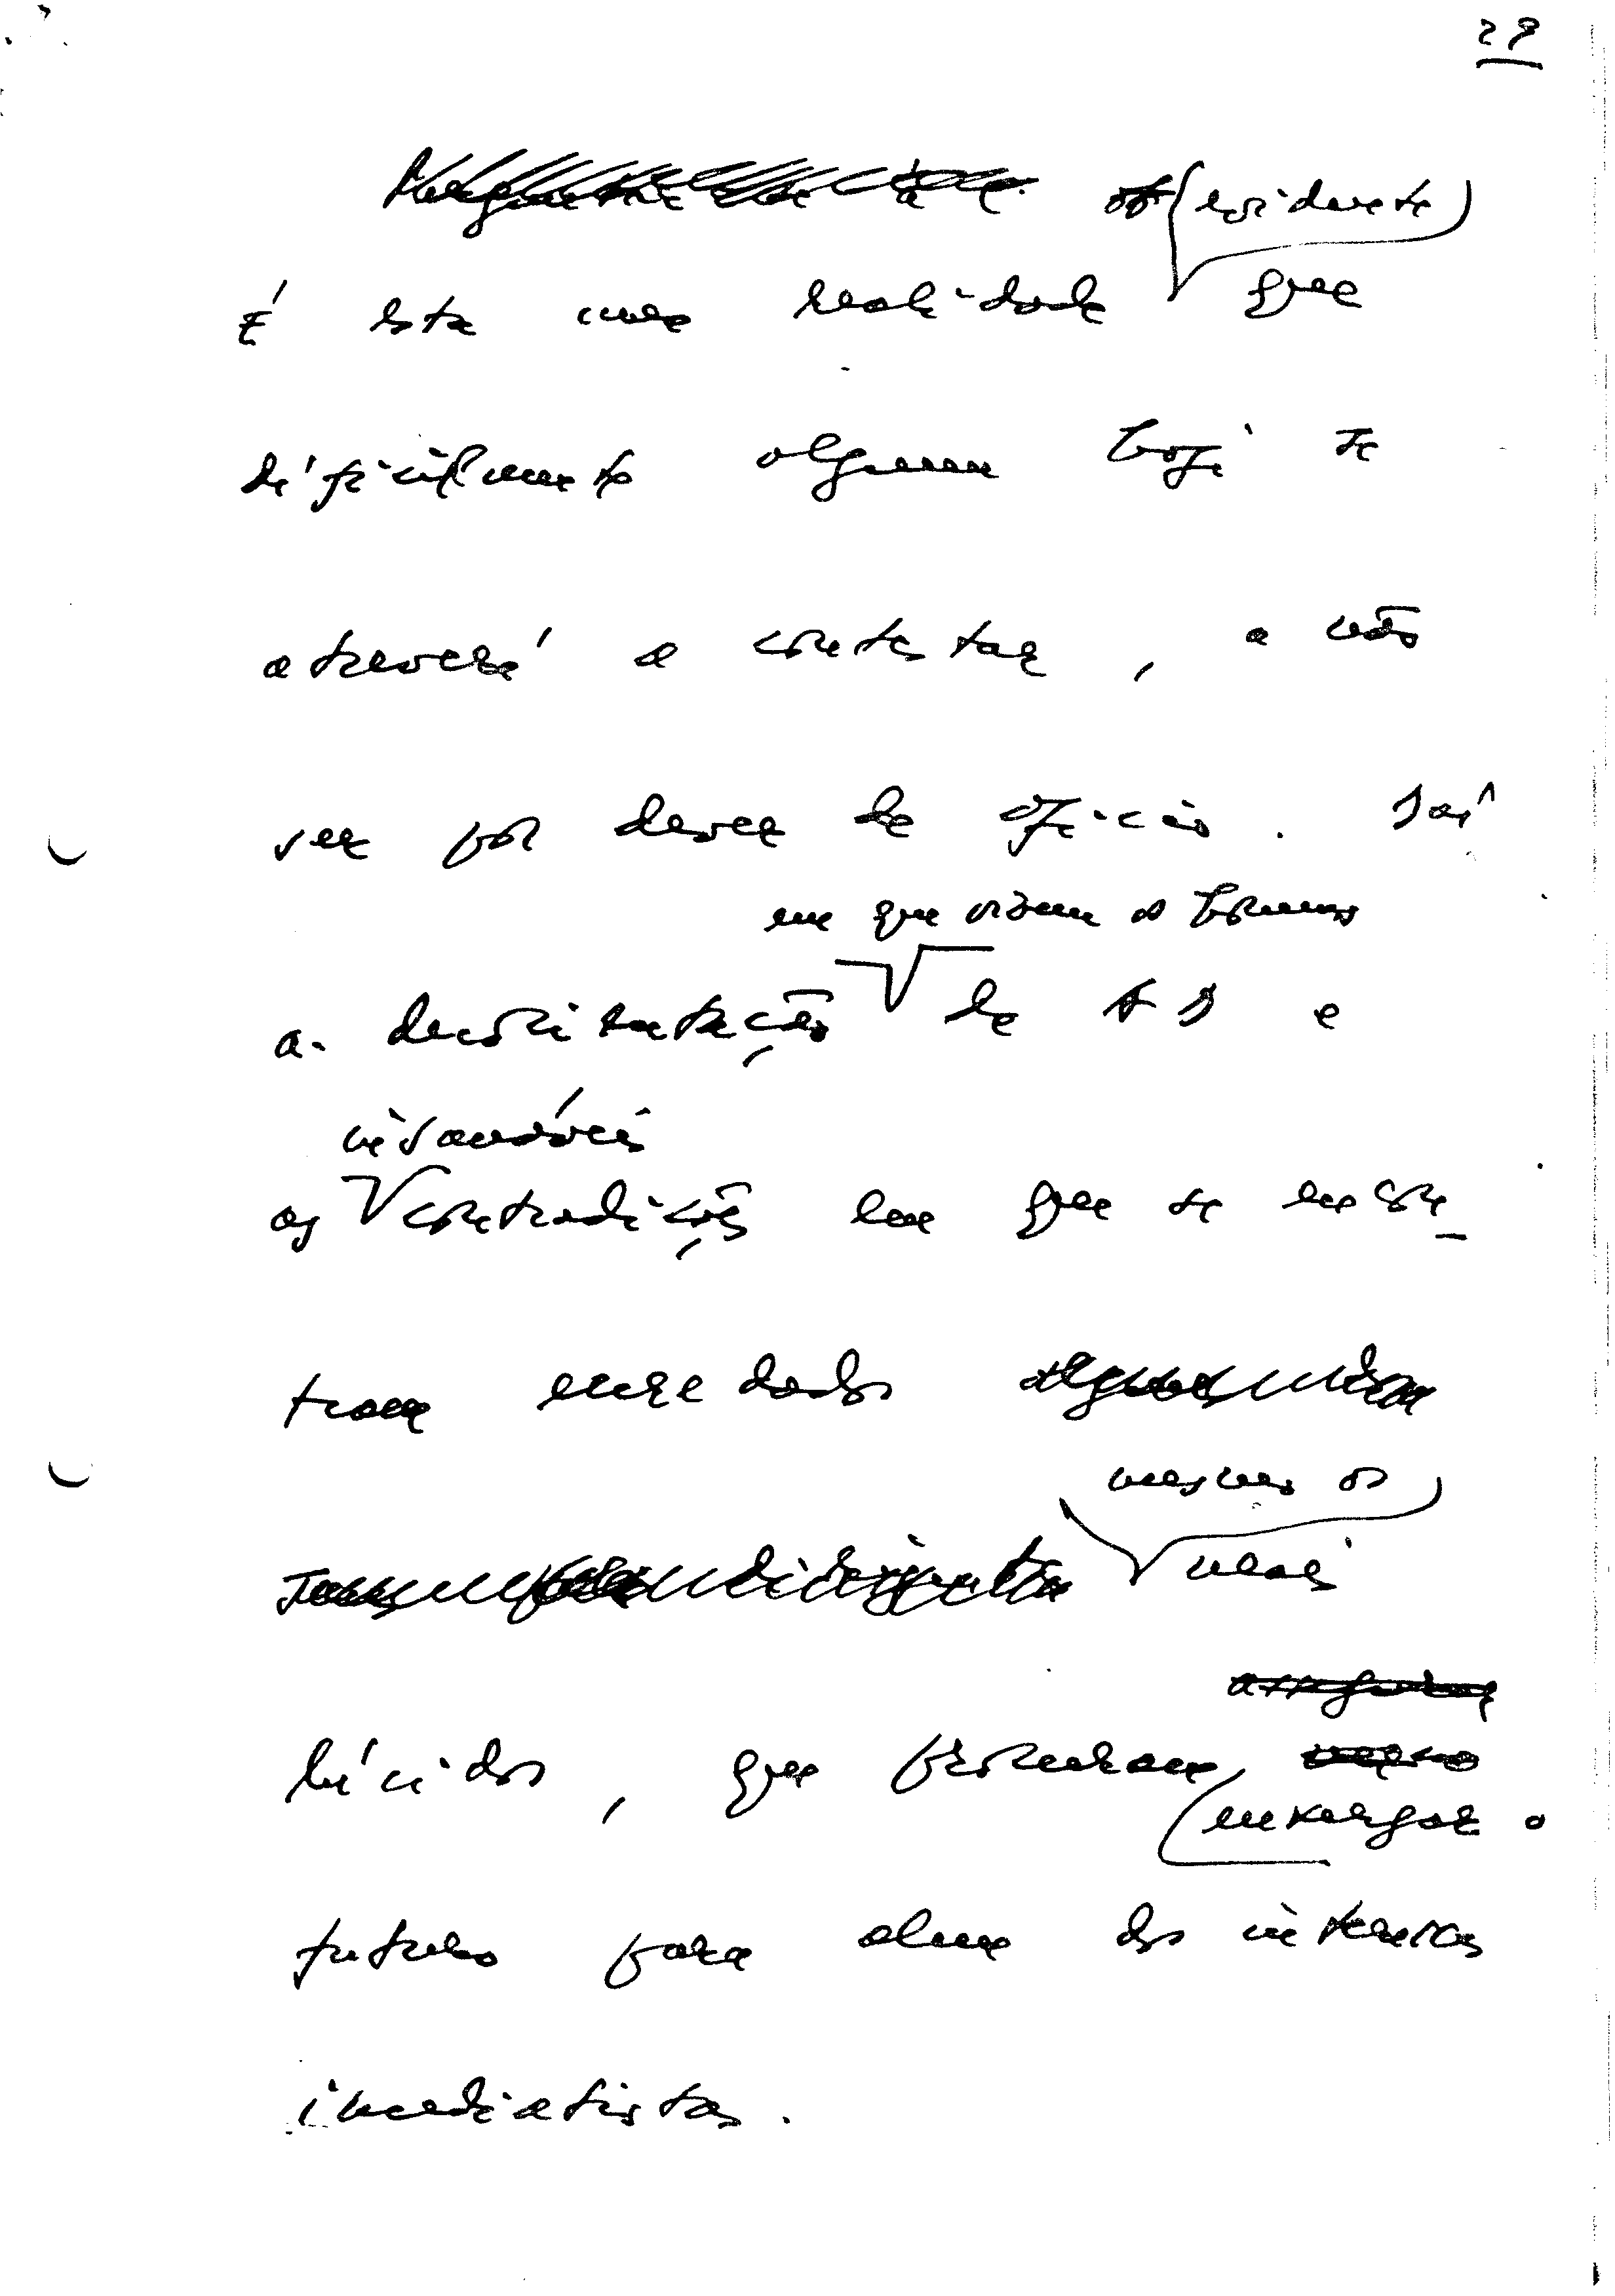 29
(evidente)
É esta uma realidade que
dificilmente alguem hoje se
atreverá a contestar, a não
ser por dever de oficio. Daí
em que vivem os homens
a desorientação de AD e
insanáveis
as contradições em que se encon-
tram enredados
mesmo os mais
lúcidos, que procuram
enxergar o
futuro para alem dos interesses
imediatistas.